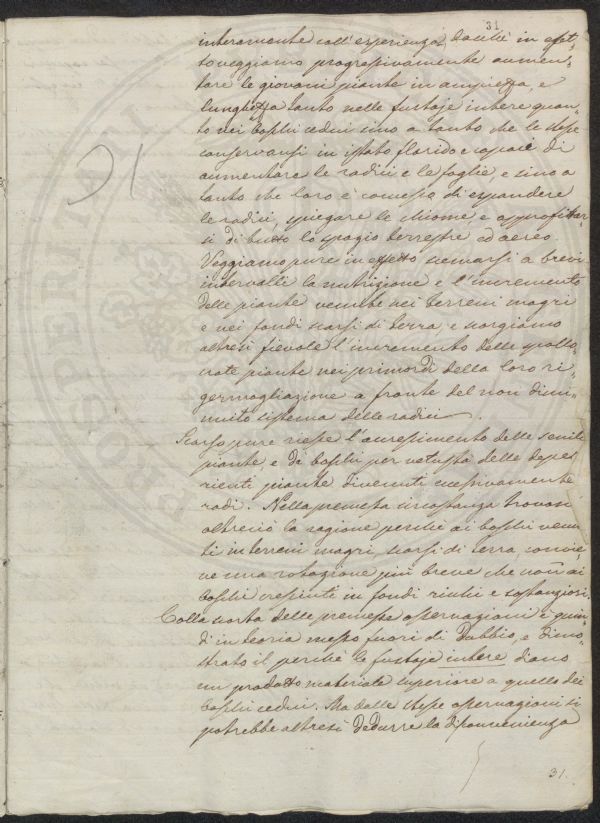 31
interamente coll'esperienza, dacchè in effet-
to veggiamo progressivamente aumen-
tare le giovani piante in ampiezza, e
lunghezza tanto nelle fustaje intere quan-
to nei boschi cedui sino a tanto che le stesse
conservansi in istato florido e capace di
aumentare le radici e le foglie, e sino a
tanto che loro è concesso di espandere
le radici, spiegare le chiome, e approfittar-
si di tutto lo spazio terrestre ed aereo.
Veggiamo pure in effetto scemarsi a brevi
intervalli la nutrizione e l'incremento
delle piante venute nei terreni magri
e nei fondi scarsi di terra, e scorgiamo
altresì fievole l'incremento delle spollo-
nate piante nei primordi della loro ri-
germogliazione a fronte del non dimi-
nuito sistema delle radici.
Scarso pure riesce l'accrescimento delle senili
piante e di boschi per vetustà delle depe-
rienti piante divenuti eccessivamente
radi. Nella premessa circostanza trovasi
altrenciò la ragione perchè ai boschi venu-
ti in terreni magri, scarsi di terra, convie-
ne una rotazione più breve che non ai
boschi cresciuti in fondi ricchi e sostanziosi.
Colla scorta delle premesse osservazioni è quin-
di in teoria messo fuori di Dubbio, e dimo-
strato il perchè le fustaje intere diano
un prodotto materiale superiore a quello dei
boschi cedui. Ma dalle stesse osservazioni si
potrebbe altresì dedurre la disconvenienza
31.
PROSPERITATI